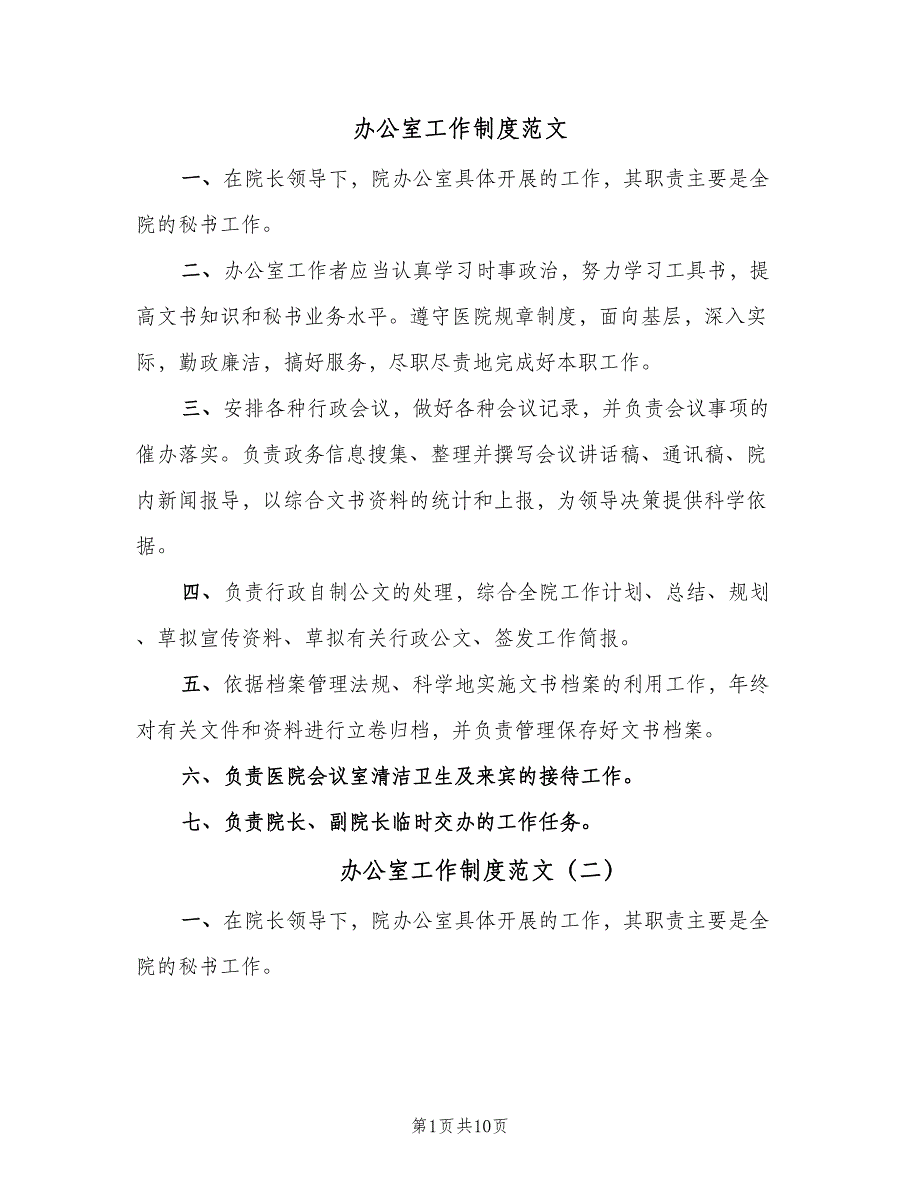 办公室工作制度范文
一、在院长领导下，院办公室具体开展的工作，其职责主要是全
院的秘书工作。
二、办公室工作者应当认真学习时事政治，努力学习工具书，提
高文书知识和秘书业务水平。遵守医院规章制度，面向基层，深入实
际，勤政廉洁，搞好服务，尽职尽责地完成好本职工作。
三、安排各种行政会议，做好各种会议记录，并负责会议事项的
催办落实。负责政务信息搜集、整理并撰写会议讲话稿、通讯稿、院
内新闻报导，以综合文书资料的统计和上报，为领导决策提供科学依
据。
四、负责行政自制公文的处理，综合全院工作计划、总结、规划
、草拟宣传资料、草拟有关行政公文、签发工作简报。
五、依据档案管理法规、科学地实施文书档案的利用工作，年终
对有关文件和资料进行立卷归档，并负责管理保存好文书档案。
六、负责医院会议室清洁卫生及来宾的接待工作。
七、负责院长、副院长临时交办的工作任务。
办公室工作制度范文（二）
一、在院长领导下，院办公室具体开展的工作，其职责主要是全
院的秘书工作。
第1页共10页